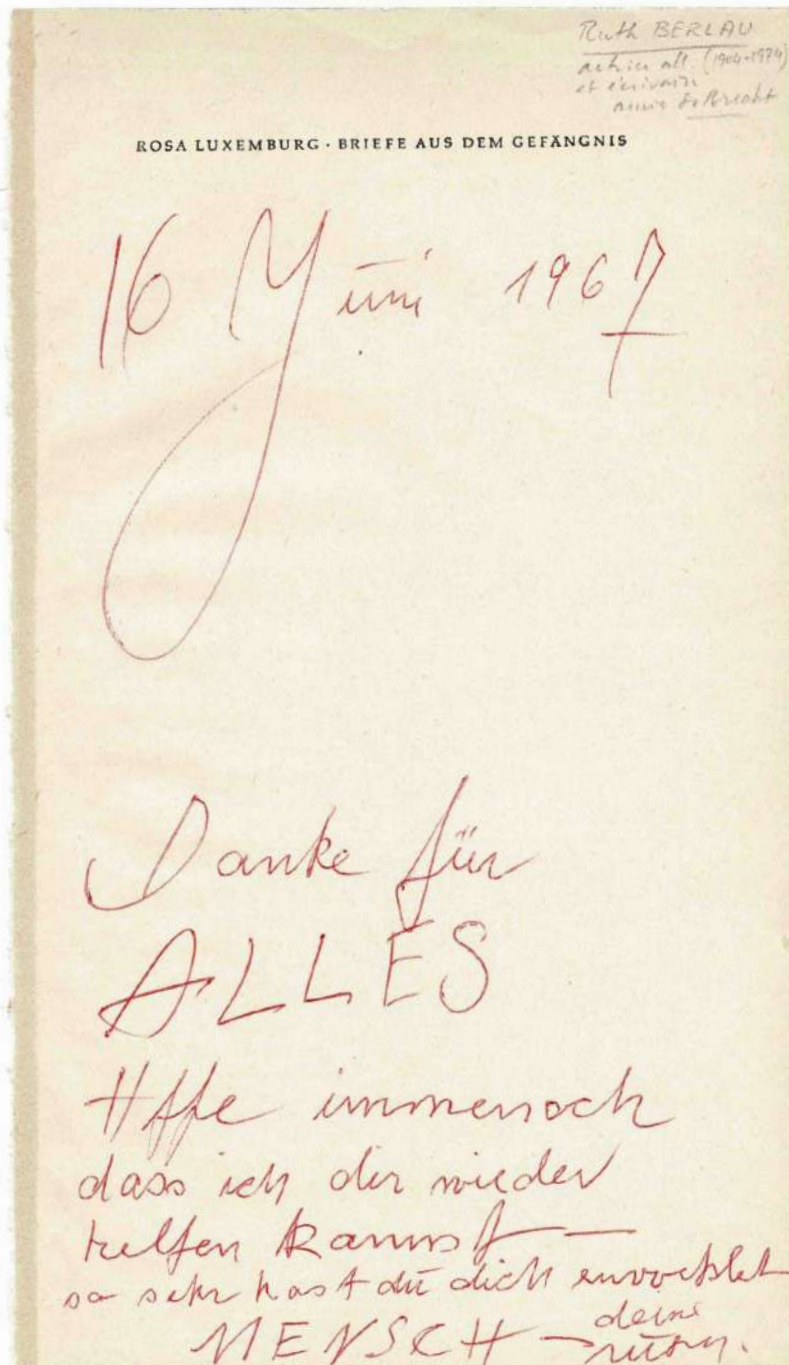 Ruth BERLAU
actrice all. (1904-1974)
et écrivain
amie de Brecht
ROSA LUXEMBURG · BRIEFE AUS DEM GEFÄNGNIS
16 Juni 1967
Danke für
ALLES
Hffe immernoch
dass ich dir wieder
helfen kannst —
so sehr hast du dich
MENSCH — deine